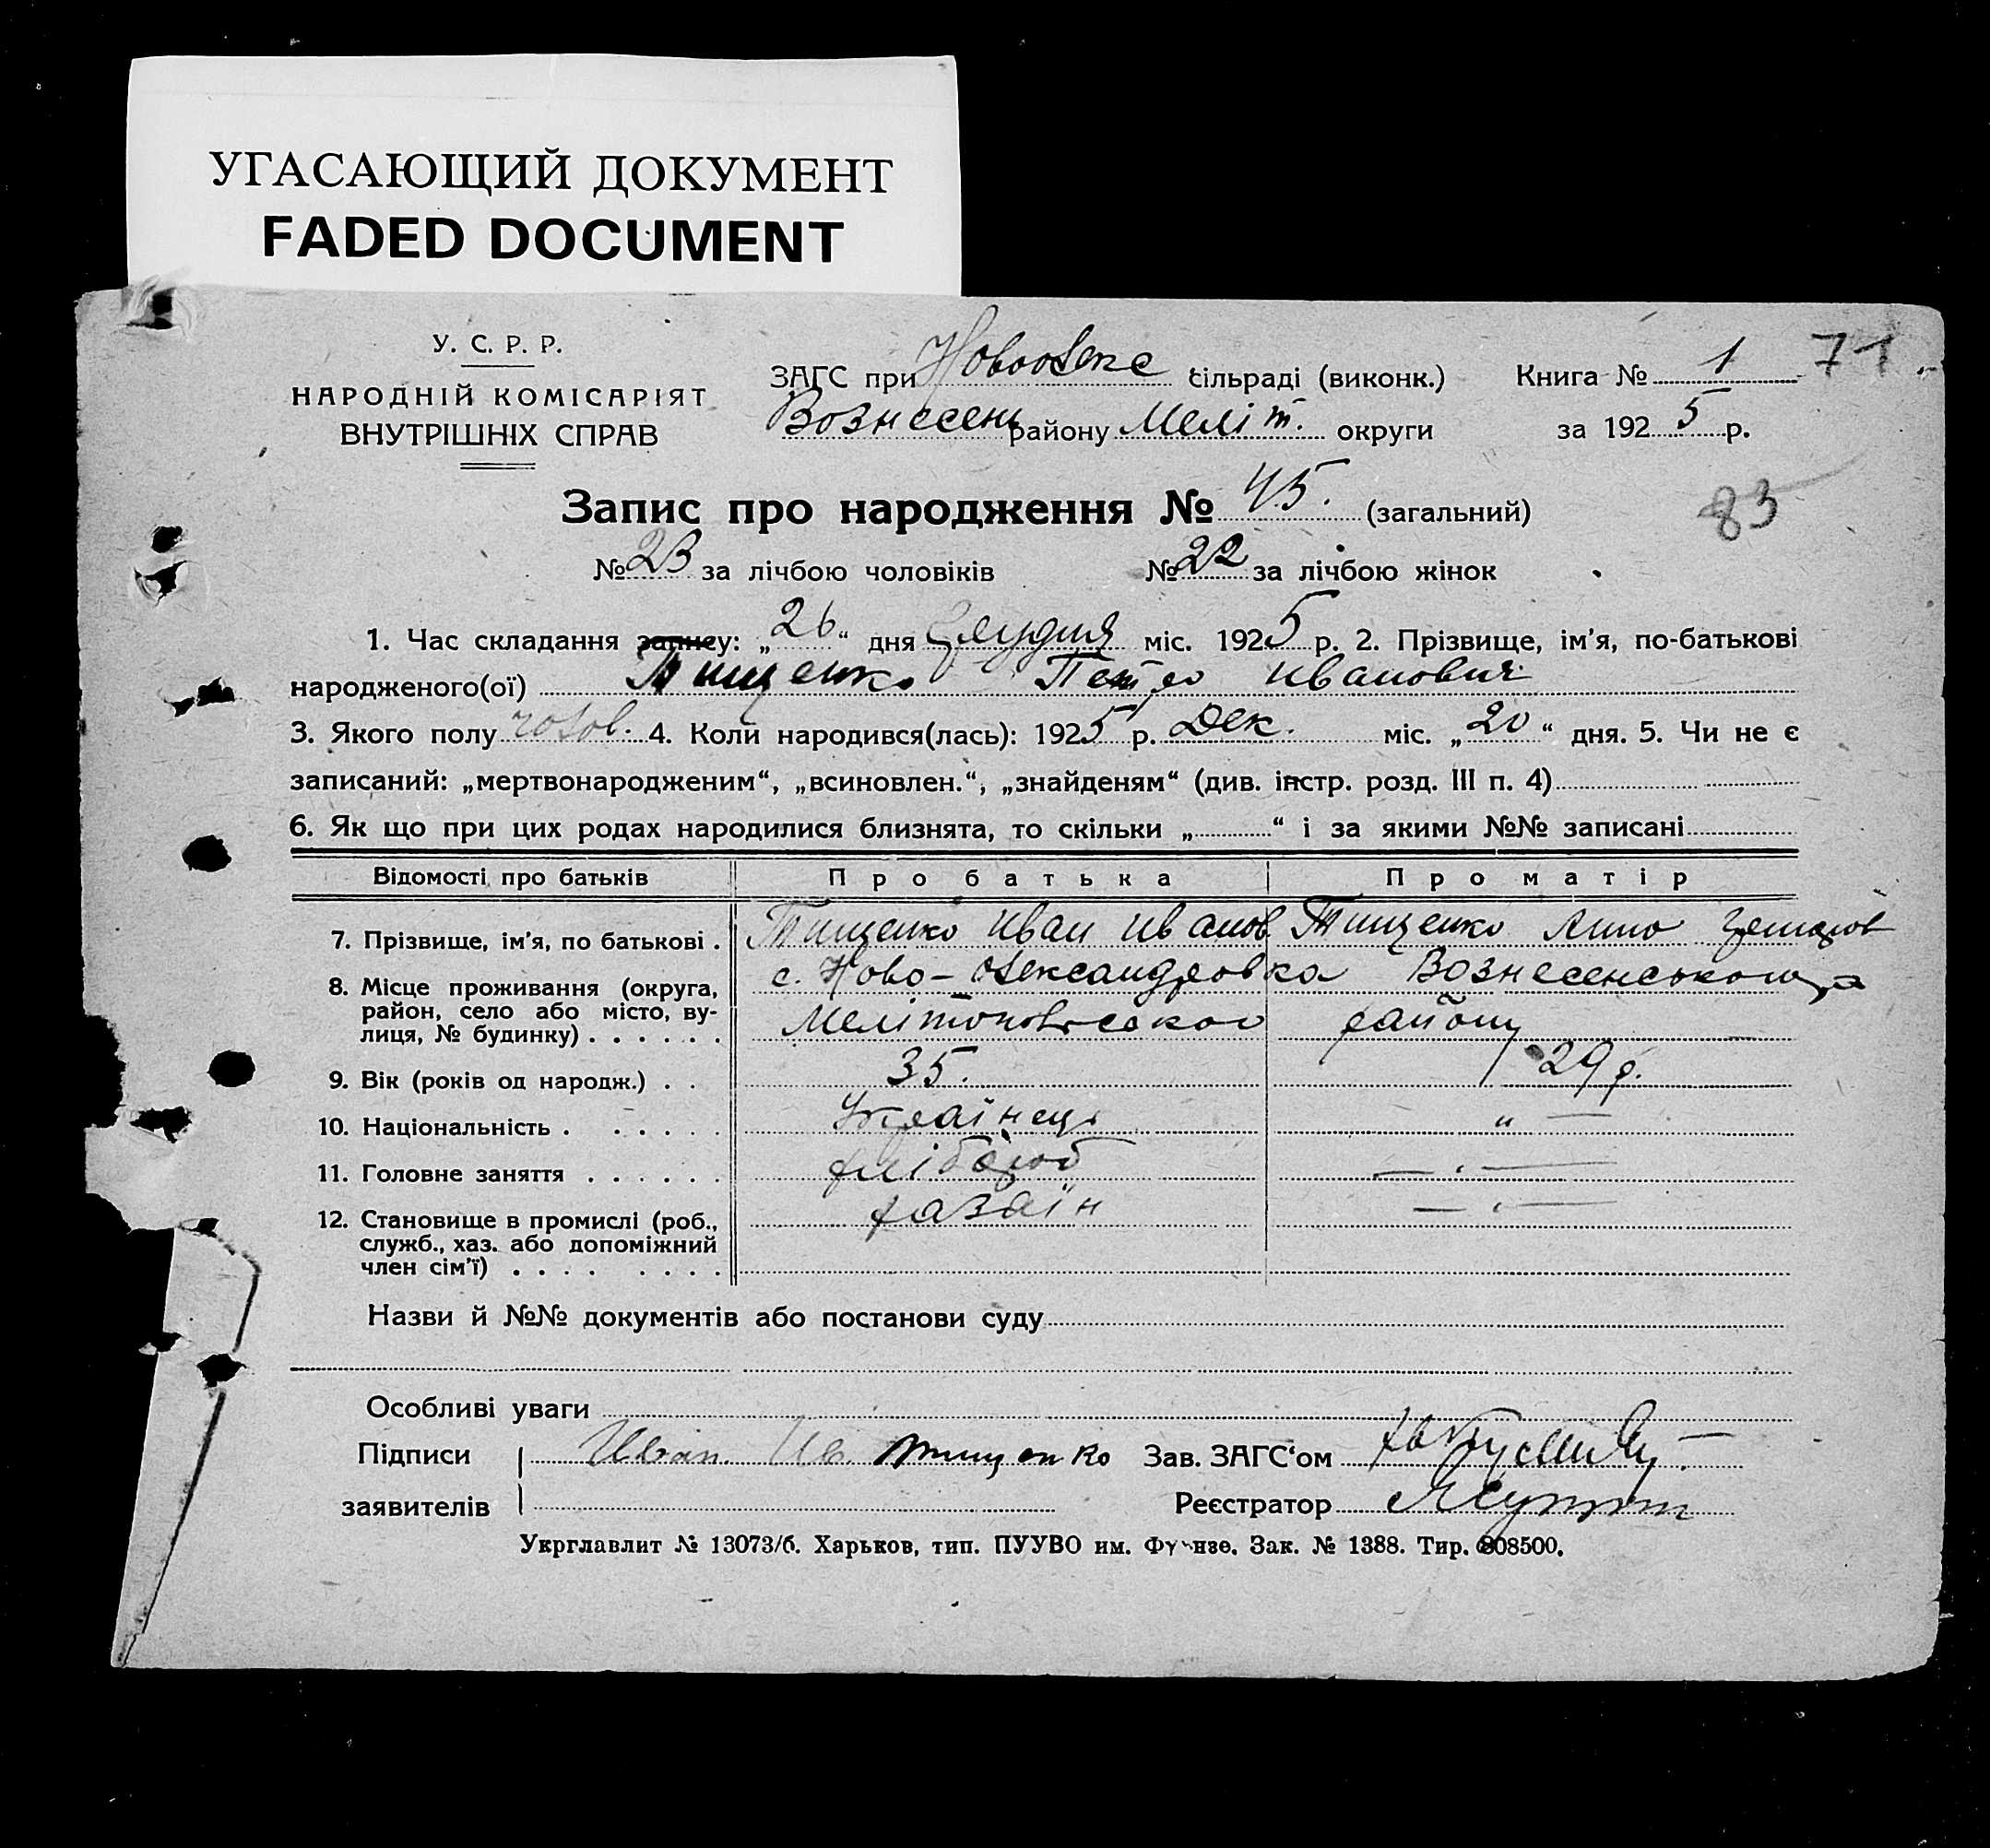 УГАСАЮЩИЙ ДОКУМЕНТ
FADED DOCUMENT
У. С. Р. Р.
НАРОДНІЙ КОМІСАРІЯТ
ВНУТРІШНІХ СПРАВ
ЗАГС при Новоолекс сільраді (виконк.) Книга № 1 71
Вознесен району Меліт. округи за 1925 р.
Запис про народження № 45. (загальний) 83
№ 23 за лічбою чоловіків № 22 за лічбою жінок
1. Час складання запису: „26“ дня Грудня міс. 1925 р. 2. Прізвище, ім’я, по-батькові
народженого(ої) Тищенко Петро Иванович
3. Якого полу чолов. 4. Коли народився(лась): 1925 р. Дек. міс. „20“ дня. 5. Чи не є
записаний: „мертвонародженим“, „всиновлен.“, „знайденям“ (див. інстр. розд. III п. 4)
6. Як що при цих родах народилися близнята, то скільки „ “ і за якими №№ записані
Відомості про батьків Про батька Про матір
7. Прізвище, ім’я, по батькові . Тищенко Иван Иванов Тищенко Анно
8. Місце проживання (округа, с. Ново-Олександровка Вознесенського
район, село або місто, ву- Мелітопольсько району
лиця, № будинку) . . . . . .
9. Вік (років од народж.) . . 35. 29 р.
10. Національність . . . . . . Українець „ —
11. Головне заняття . . . . . . хлібороб — „ —
12. Становище в промислі (роб., хазаїн — „ —
служб., хаз. або допоміжний
член сім’ї) . . . . . . . .
Назви й №№ документів або постанови суду
Особливі уваги
Підписи Иван. Ив. Тищенко Зав. ЗАГС‘ом
заявителів Реєстратор
Укрглавлит № 13073/б. Харьков, тип. ПУУВО им. Фрунзе. Зак. № 1388. Тир. 808500.